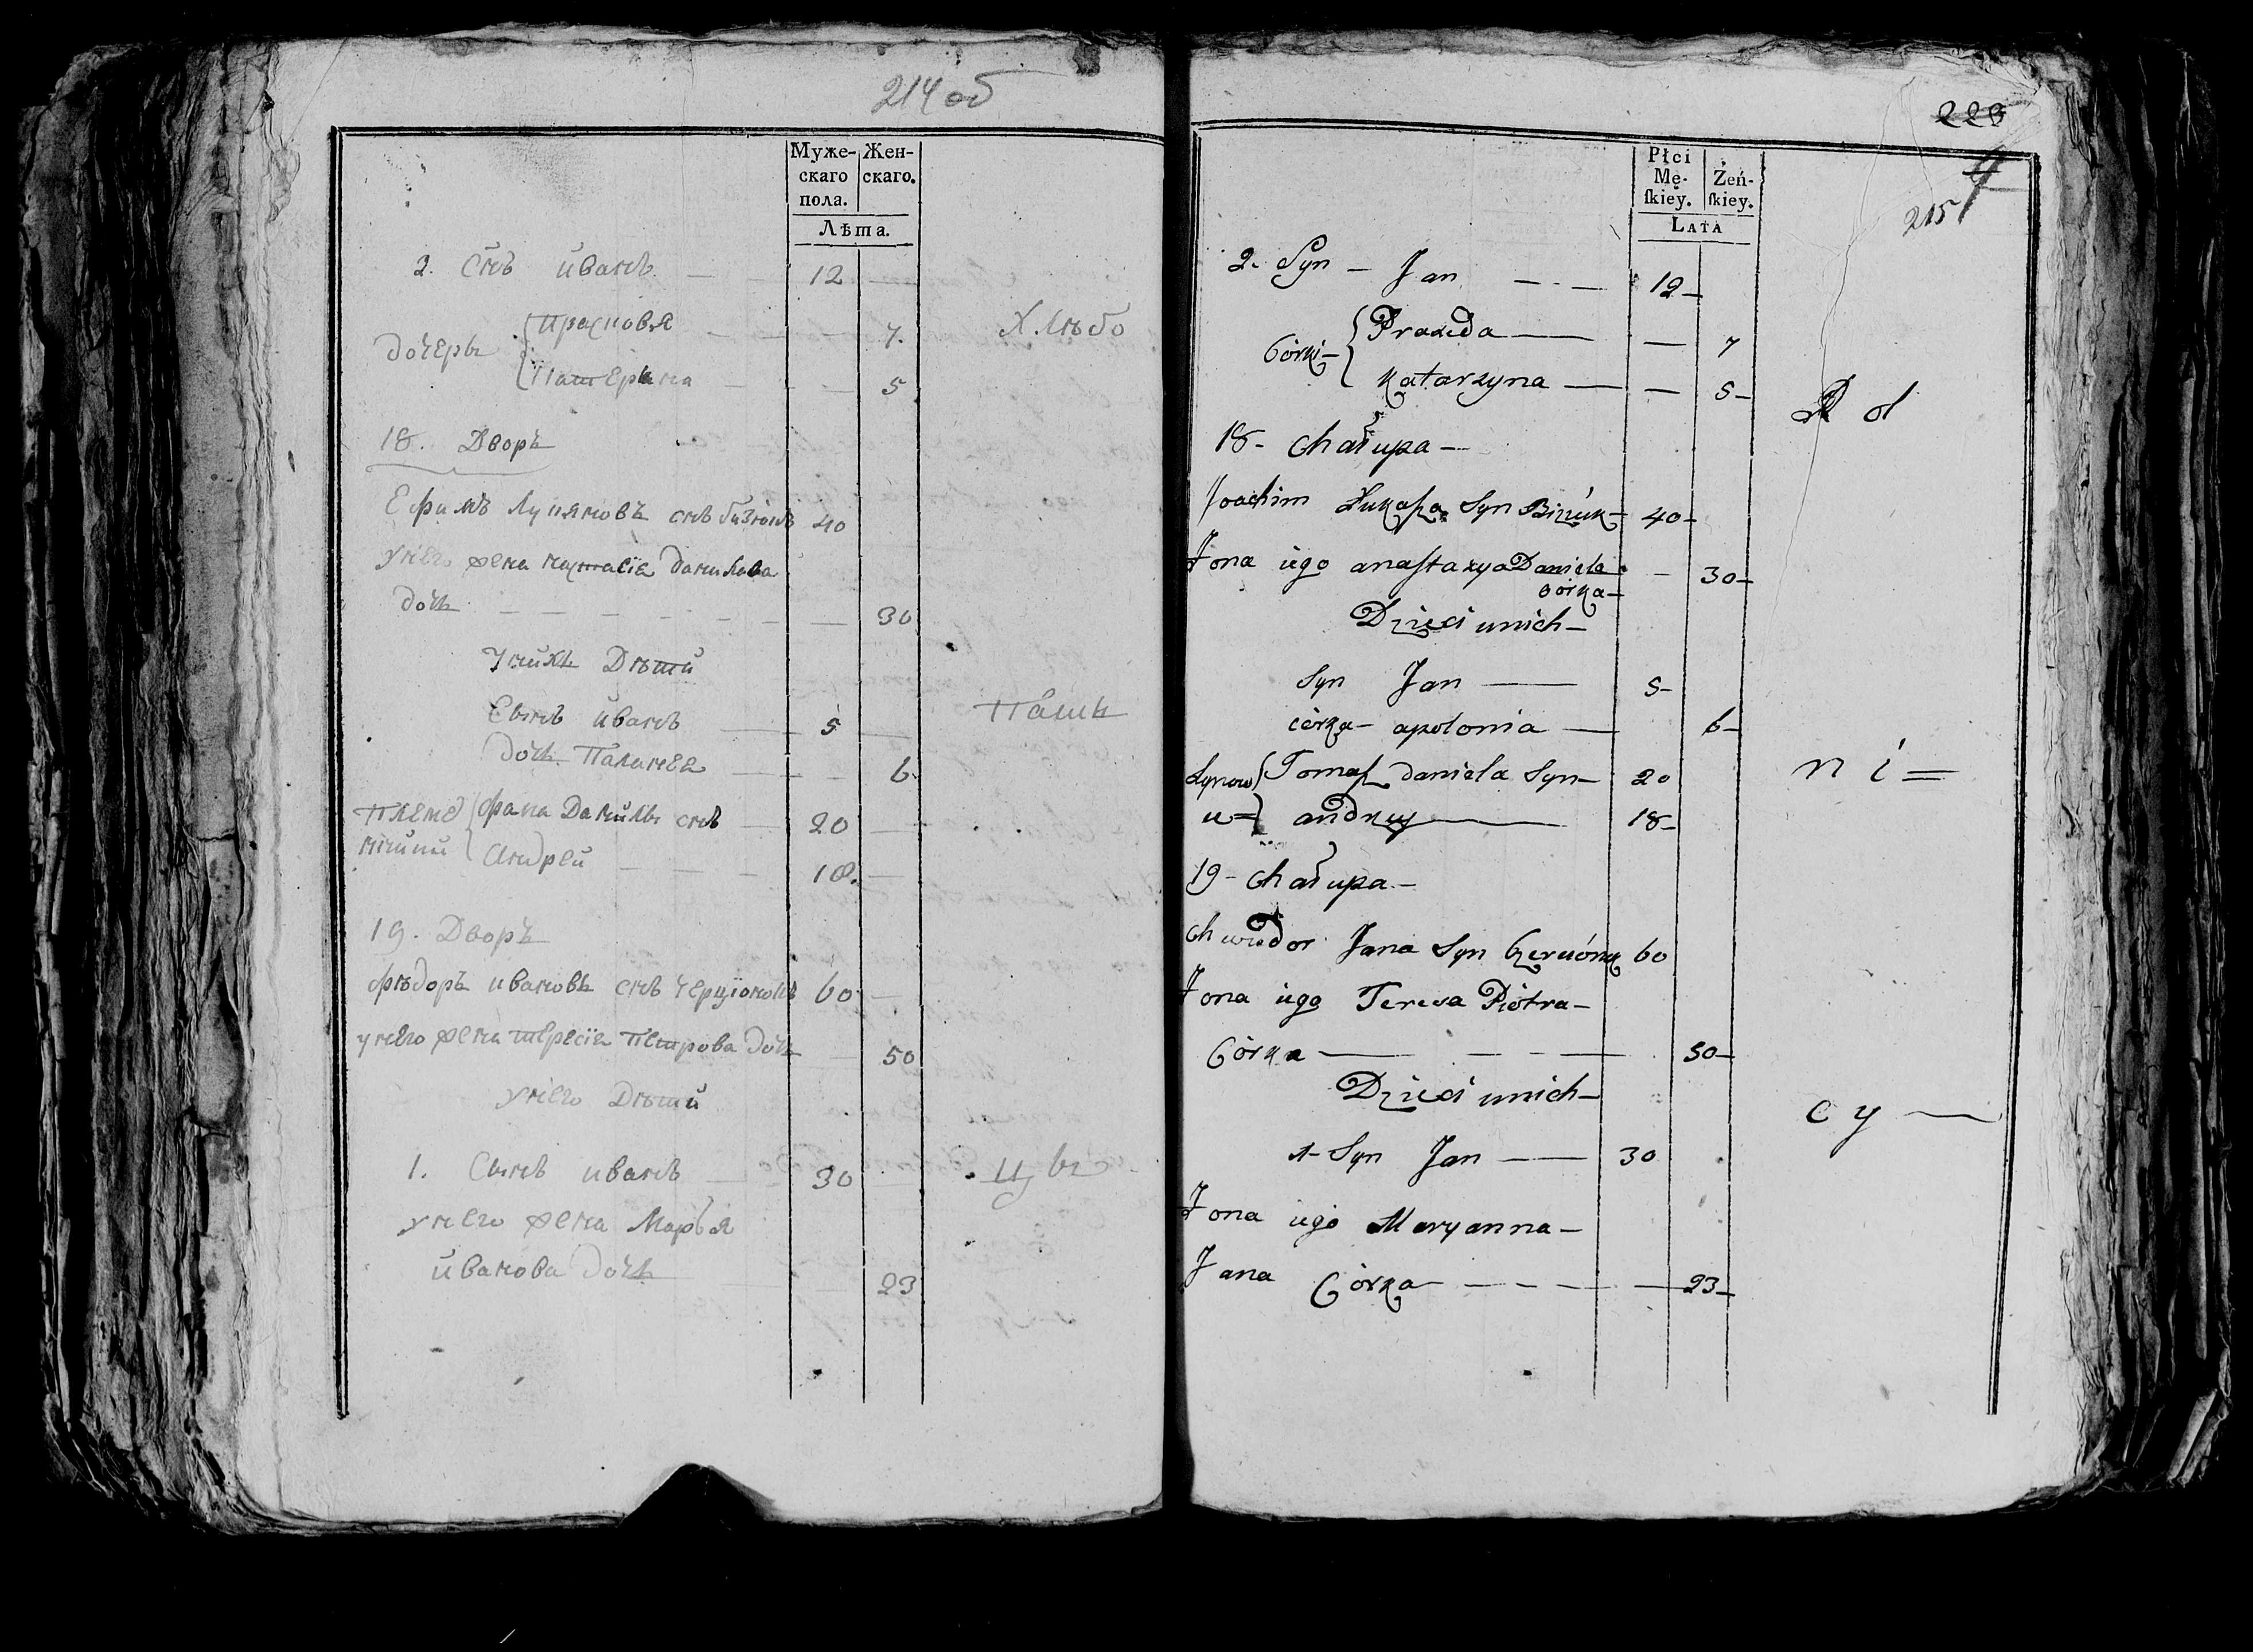 214 об
Муже- Жен-
скаго скаго.
пола.
Лѣта.
2. Снъ иванъ 12
Х лѣбо
дочеры Прасковя 7.
Катерина 5
18. Дворъ
Ефимъ Лукяновъ снъ бизюкъ 40
унего жена настасія данилава
дочь 30
Унихъ Дѣти
Сынъ иванъ 5
Паши
дочь Паланея 6
племе Фама Данилы снъ 20
ники Андрей 18.
19. Дворъ
Фѣдоръ ивановъ снъ 60
унего жена тересія Петрова дочь 50
унего Дѣти
1. Сынъ иванъ 30
цы
унего жена Маръя
иванова дочь 23
228
4
215
Płci
Mę- Żeń-
ſkiey. ſkiey.
LATA
2. Syn – Jan 12
Córki Praxeda 7
Katarzyna 5
R ol
18 – Chałupa –
Joachim Łukaſza Syn Biziuk 40
Żona iego anaſtazya Daniela 30
córka
Dzieci unich –
Syn Jan 5
córka – apolonia 6
Synow Tomaſz daniela Syn – 20
n i =
ie = andrzey 18
19 – Chałupa –
Chwiedor Jana Syn 60
Żona iego Teresa Piotra –
Córka 50
Dzieci unich –
c y
1 – Syn Jan 30
Żona iego Maryanna –
Jana Córka 23